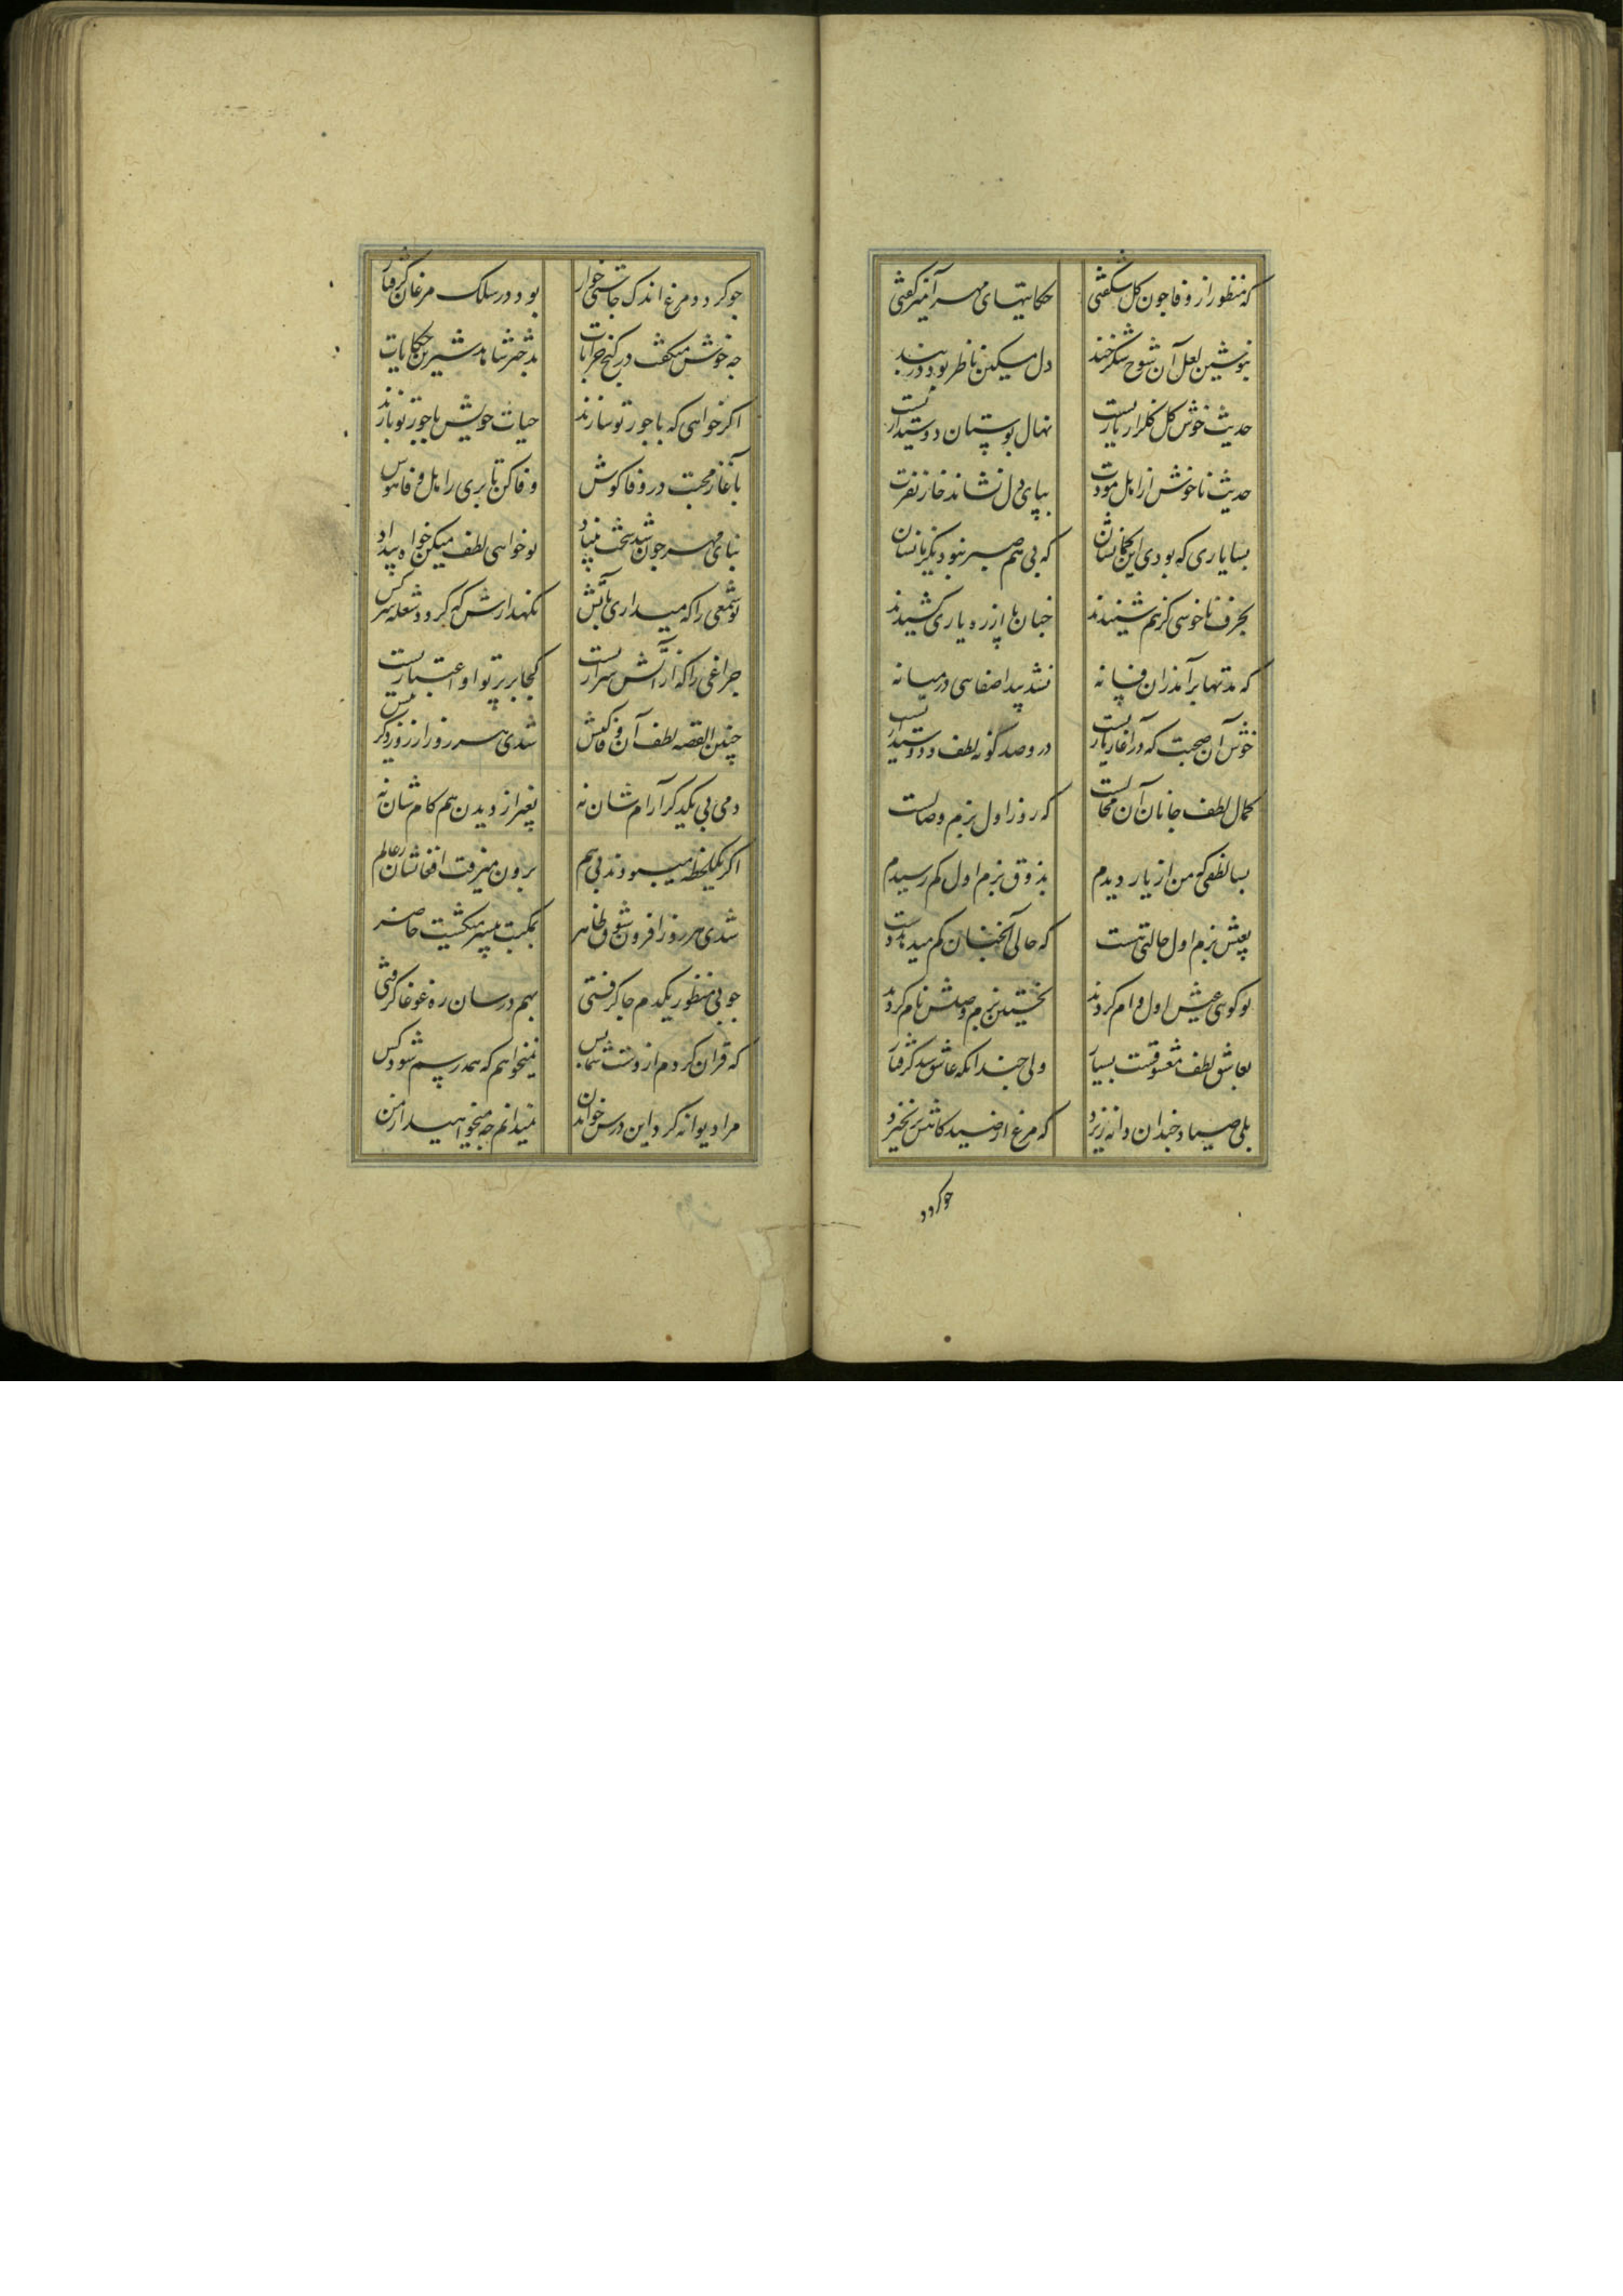 که منظور از وفا چون گل شکفتی حکایتهای مهر آمیز گفتی
بنوشین لعل آن شوخ شکرخند دل مسکین ناظر بود در بند
حدیث خوش گل گلزار یاریست نهال بوستان دوستداریست
حدیث ناخوش از اهل مودت بپای دل نشاند خار نفرت
بسا یاری که بودی اینچنانشان که بی هم صبر نبود یکزمانشان
بحرف ناخوشی کز هم شنیدند چنان پا از ره یاری کشیدند
که مدتها برآمد زان فسانه نشد پیدا صفایی در میانه
خوش آن صحبت که در آغاز یاریست در و صد گونه لطف و دوستداریست
کمال لطف جانان آن مجالست که روز اول بزم وصالست
بسا لطفی که من از یار دیدم بذوق بزم اول کم رسیدم
بعیش بزم اول حالتی هست که حالی آنچنان کم میدهد دست
تو گویی عیش اول وام کردند نخستین بزم وصلش نام کردند
بعاشق لطف معشوقست بسیار ولی چندانکه عاشق شد گرفتار
بلی صیاد چندان دانه ریزد که مرغ از صیدگاهش برنخیزد
چو گردد
چو گردد مرغ اندک چاشنی خوار بود در سلک مرغان گرفتار
چه خوش میگفت در کنج خرابات بدختر شاهد شیرین حکایات
اگر خواهی که با جور تو سازند حیات خویش با جور تو بازند
بآغاز محبت در وفا کوش وفا کن تا بری ز اهل وفا هوش
بنای مهر چون شد سخت بنیاد تو خواهی لطف میکن خواه بیداد
تو شمعی را که میداری بآتش نگهدارش که گردد شعله سرکش
چراغی را که از آتش شراریست کجا بر پرتو او اعتباریست
چنین القصه لطف آن وفا کیش شدی هر روز از روز دگر بیش
دمی بی یکدگر آرامشان نه بغیر از دیدن هم کامشان نه
اگر یکلحظه میبودند بی هم برون میرفت افغانشان ز عالم
شدی هر روز افزون شوق ناظر بمکتب بیشتر میگشت حاضر
چو بی منظور یکدم جا گرفتی بهم درسان ره غوغا گرفتی
که قرآن کردم از دست شما بس نمیخواهم که همدرسم شود کس
مرا دیوانه کرد این درس خواندن نمیدانم چه میخواهید از من